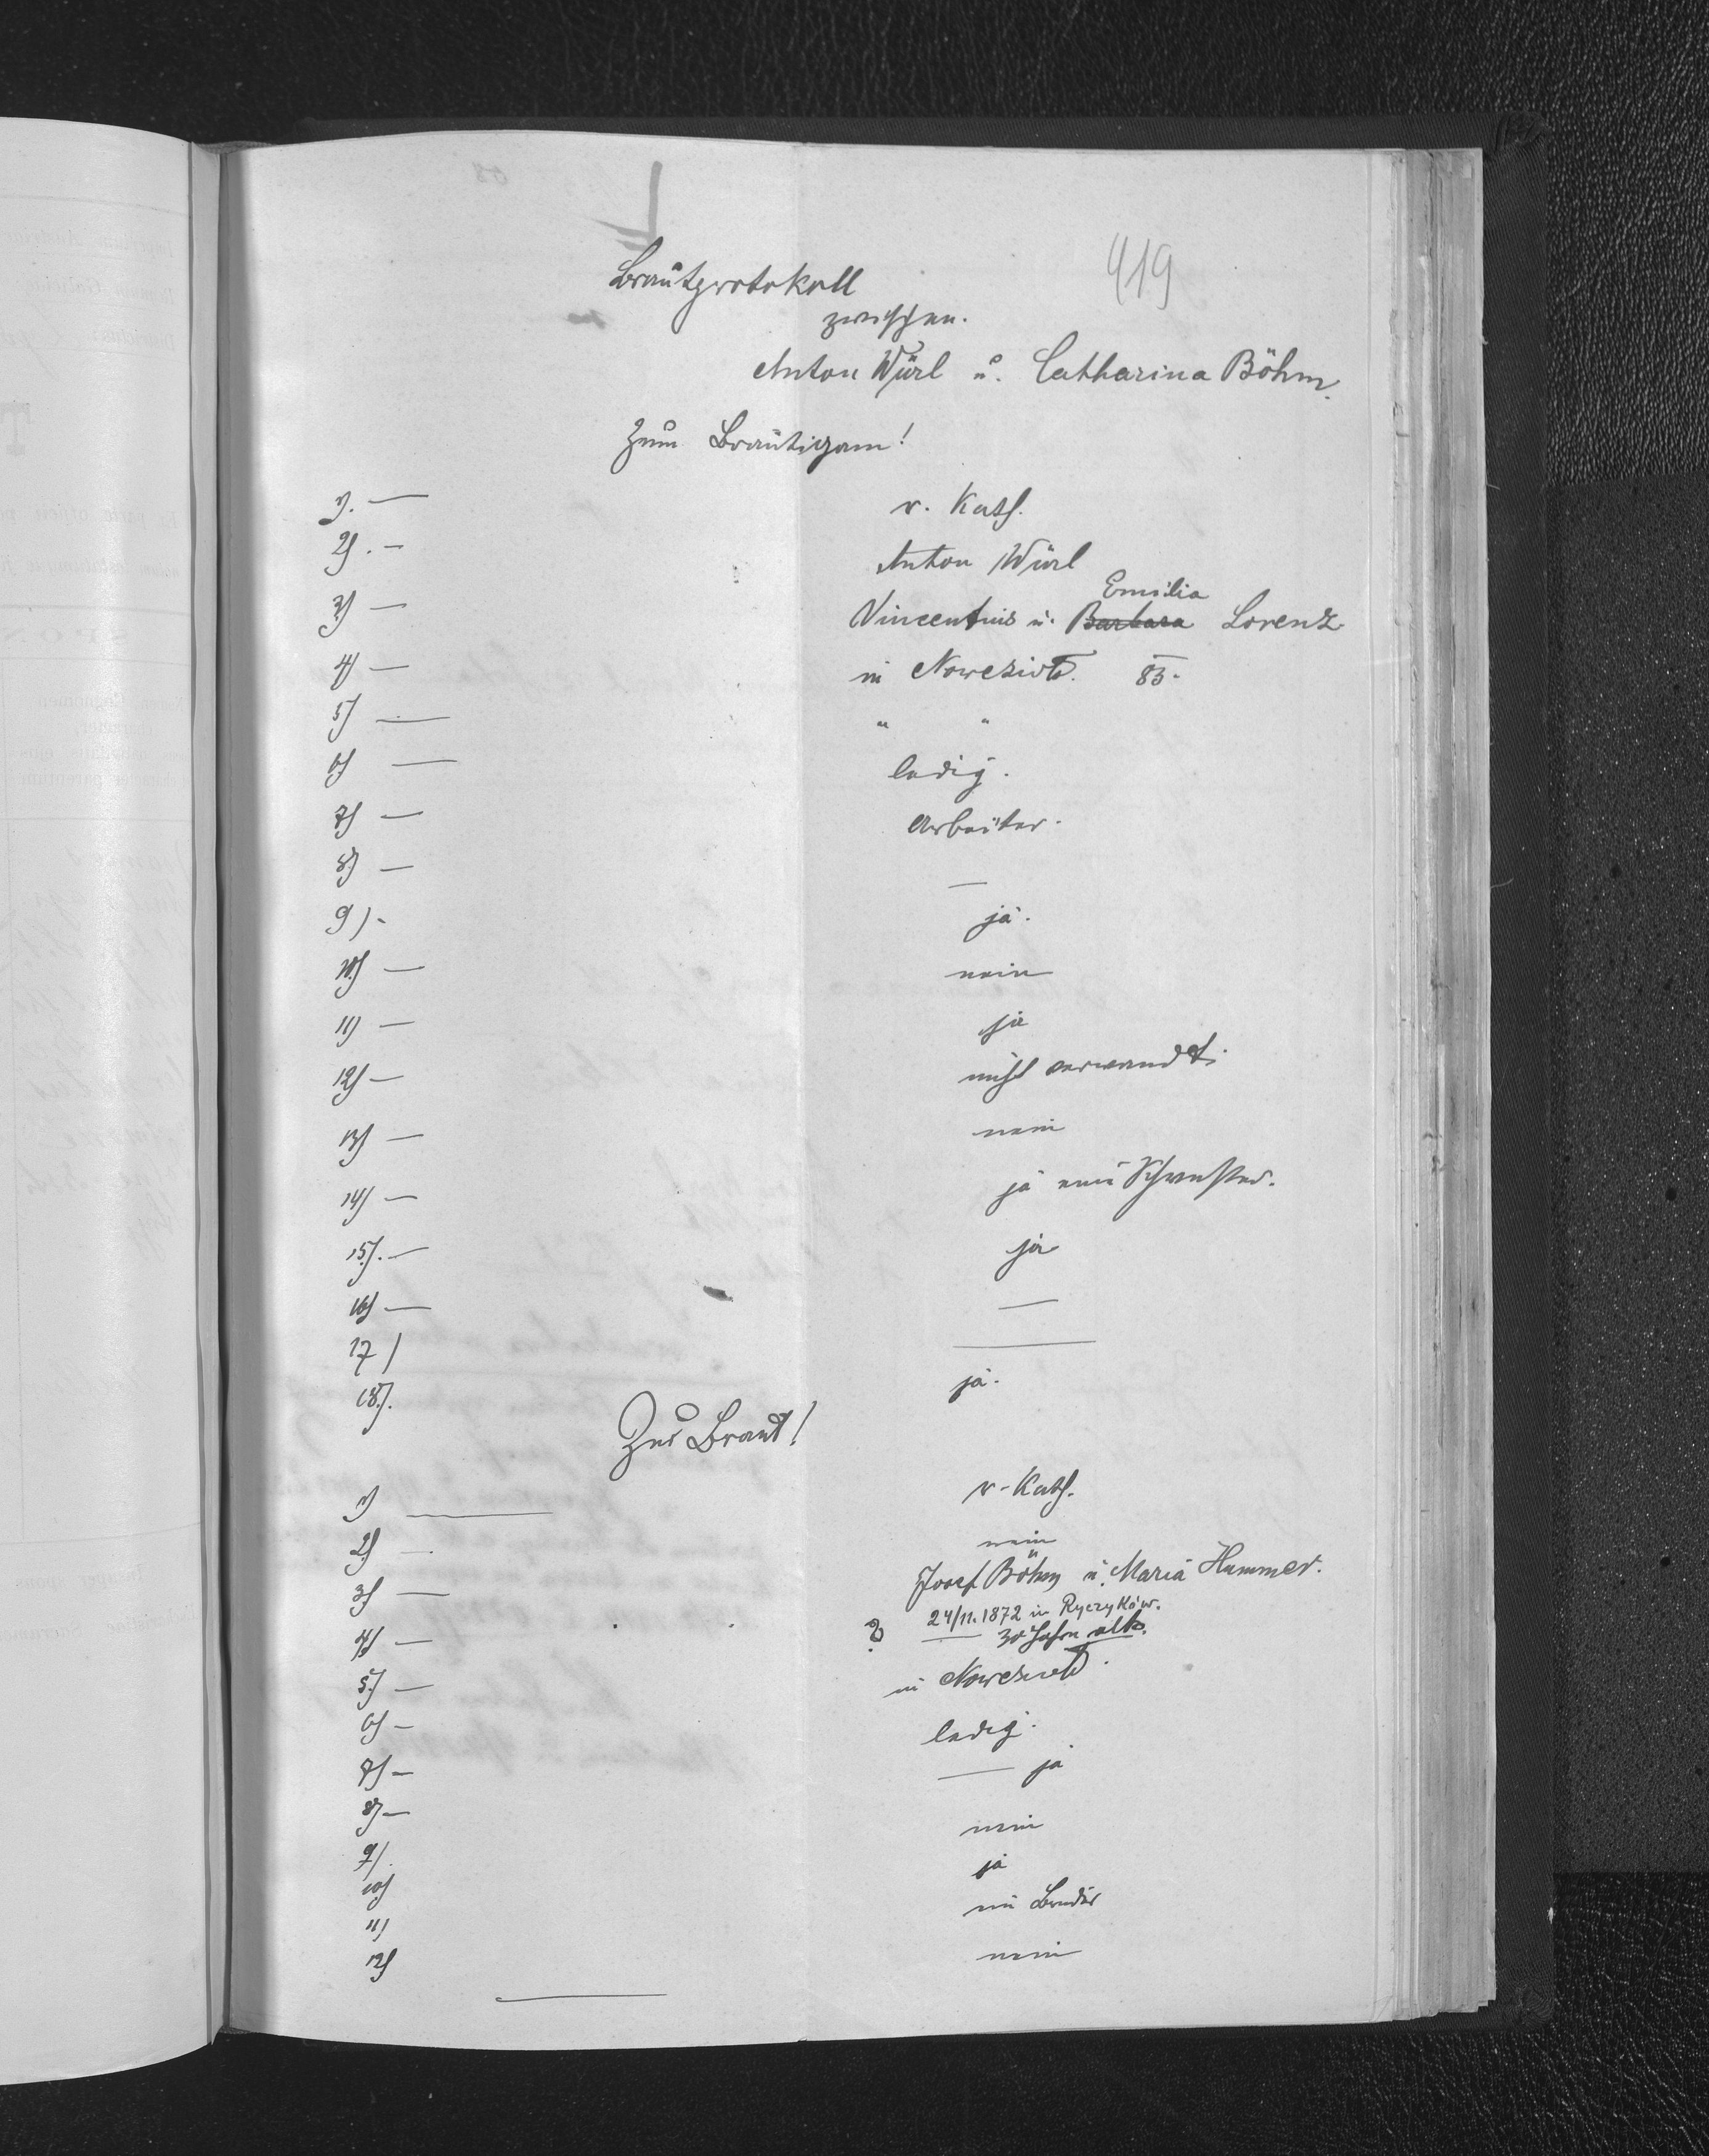 419
Brautprotokoll
zwischen.
Anton Würl u. Catharina Böhm.
Zum Bräutigam!
1). — r. Kath.
2). — Anton Würl
Emilia
3) — Vincentius u. Barbara Lorenz
4) — in 83.
5) — " "
6) — ledig.
7) — Arbeiter.
8) — —
9) - ja.
10) — nein
11) — ja
12) — nicht verwandt.
13) — nein
14) — ja eine Schwester.
15). — ja
16) — —
17) —
18). ja.
Zur Braut!
1) — r. Kath.
2) — nein
3) — Josef Böhm u. Maria Hammer.
24/11. 1872 in Ryczyków.
4) — ? — 30 Jahre alt.
5.) — in
6) — ledig.
7) — — ja
8) — nein
9) ja
10) ein Bruder
11)
12) nein